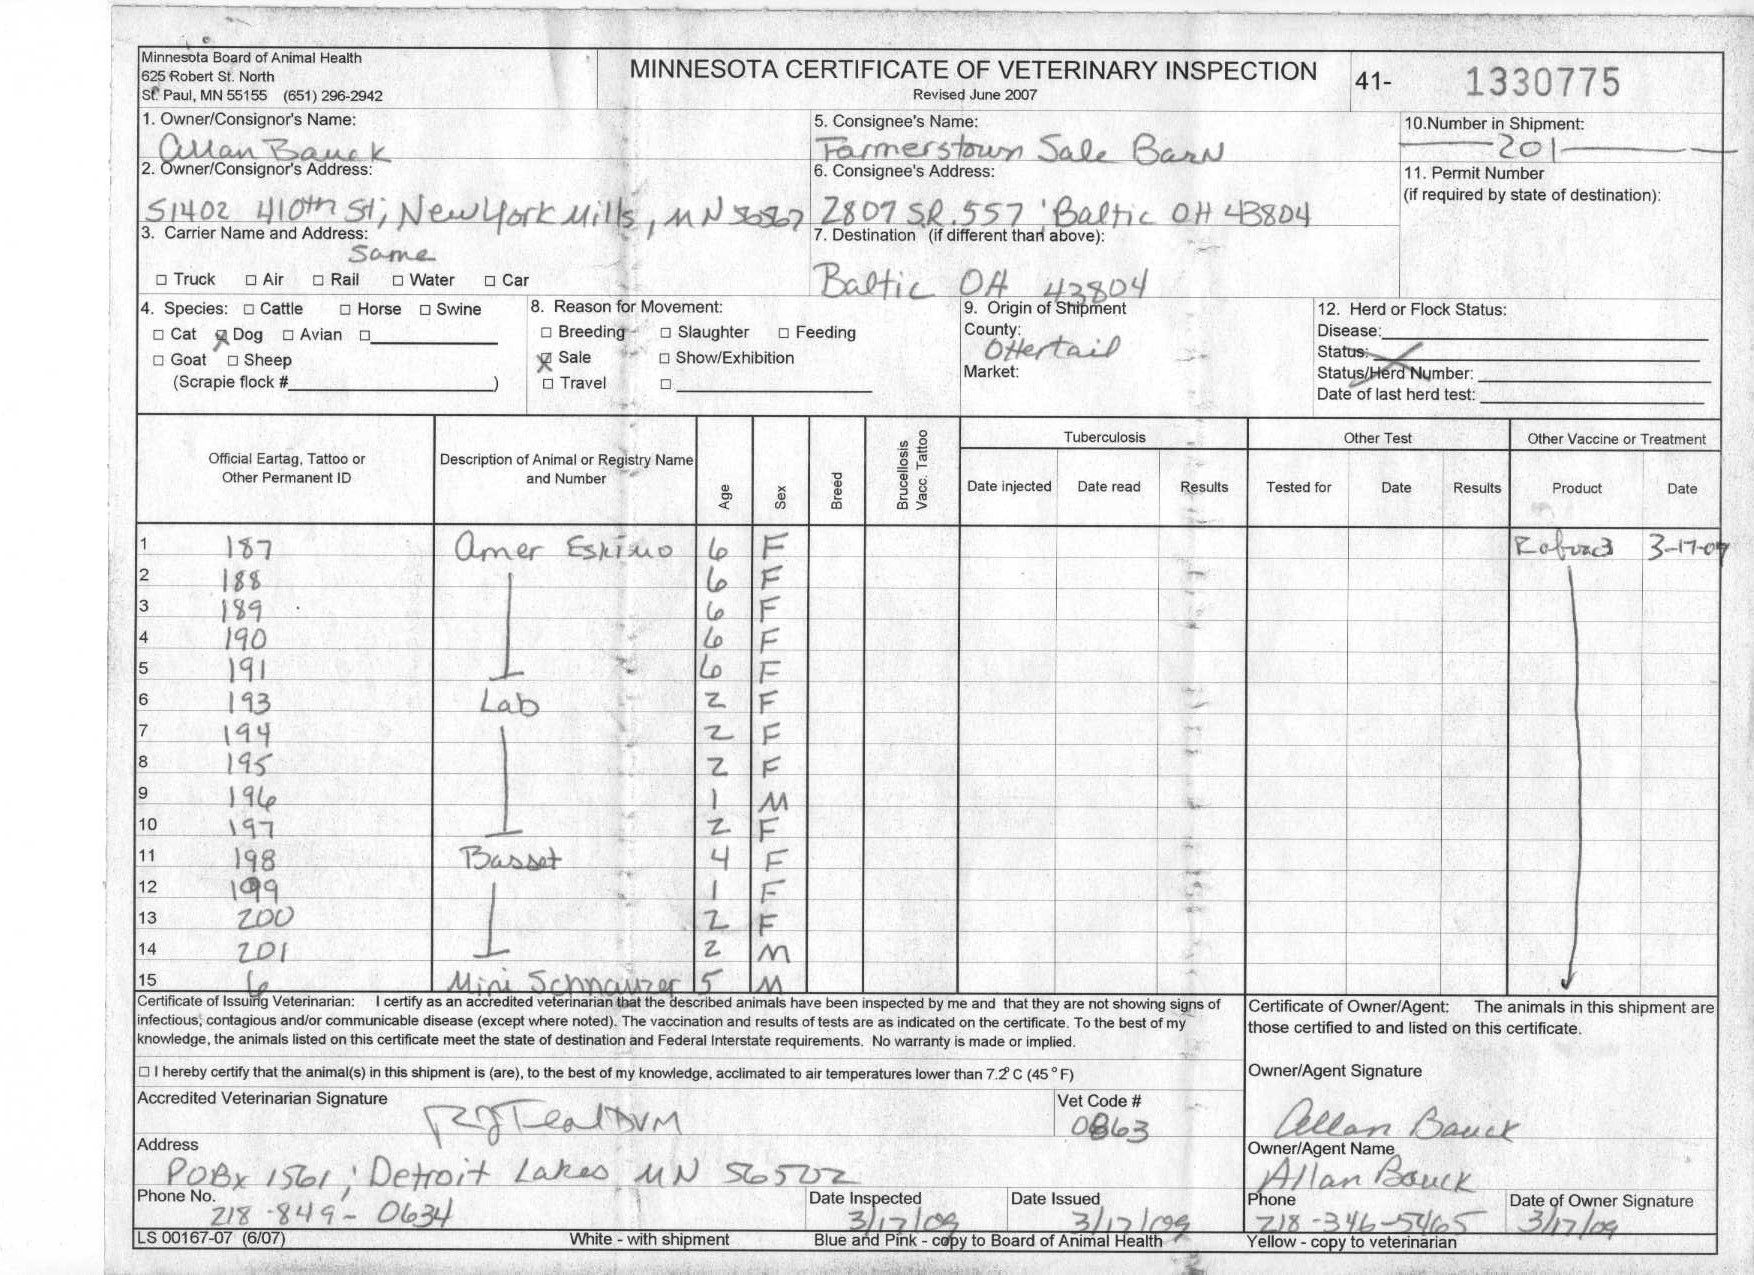 Minnesota Board of Animal Health
625 Robert St. North
St. Paul, MN 55155 (651) 296-2942
MINNESOTA CERTIFICATE OF VETERINARY INSPECTION
Revised June 2007
41- 1330775
1. Owner/Consignor's Name:
Allan Bauck
2. Owner/Consignor's Address:
51402 410th St; New York Mills, MN 56567
3. Carrier Name and Address:
Same
☐ Truck ☐ Air ☐ Rail ☐ Water ☐ Car
5. Consignee's Name:
Farmerstown Sale Barn
6. Consignee's Address:
2807 SR. 557 Baltic OH 43804
7. Destination (if different than above):
Baltic OH 43804
10.Number in Shipment:
201
11. Permit Number
(if required by state of destination):
4. Species: ☐ Cattle ☐ Horse ☐ Swine
☐ Cat ☒ Dog ☐ Avian ☐
☐ Goat ☐ Sheep
(Scrapie flock # )
8. Reason for Movement:
☐ Breeding ☐ Slaughter ☐ Feeding
☒ Sale ☐ Show/Exhibition
☐ Travel ☐
9. Origin of Shipment
County:
Ottertail
Market:
12. Herd or Flock Status:
Disease:
Status:
Status/Herd Number:
Date of last herd test:
Official Eartag, Tattoo or
Other Permanent ID
Description of Animal or Registry Name
and Number
Age
Sex
Breed
Brucellosis
Vacc. Tattoo
Tuberculosis
Date injected Date read Results
Other Test
Tested for Date Results
Other Vaccine or Treatment
Product Date
1 187 Amer Eskimo 6 F Rabvac3 3-17-09
2 188 6 F
3 189 6 F
4 190 6 F
5 191 6 F
6 193 Lab 2 F
7 194 2 F
8 195 2 F
9 196 1 M
10 197 2 F
11 198 Basset 4 F
12 199 1 F
13 200 2 F
14 201 2 M
15 6 Mini Schnauzer 5 M
Certificate of Issuing Veterinarian: I certify as an accredited veterinarian that the described animals have been inspected by me and that they are not showing signs of
infectious, contagious and/or communicable disease (except where noted). The vaccination and results of tests are as indicated on the certificate. To the best of my
knowledge, the animals listed on this certificate meet the state of destination and Federal Interstate requirements. No warranty is made or implied.
☐ I hereby certify that the animal(s) in this shipment is (are), to the best of my knowledge, acclimated to air temperatures lower than 7.2° C (45° F)
Accredited Veterinarian Signature
RJ Teal DVM
Vet Code #
0863
Address
PO Bx 1561; Detroit Lakes MN 56502
Phone No.
218-849-0634
Date Inspected
3/17/09
Date Issued
3/17/09
Certificate of Owner/Agent: The animals in this shipment are
those certified to and listed on this certificate.
Owner/Agent Signature
Allan Bauck
Owner/Agent Name
Allan Bauck
Phone
218-346-5465
Date of Owner Signature
3/17/09
LS 00167-07 (6/07) White - with shipment Blue and Pink - copy to Board of Animal Health Yellow - copy to veterinarian